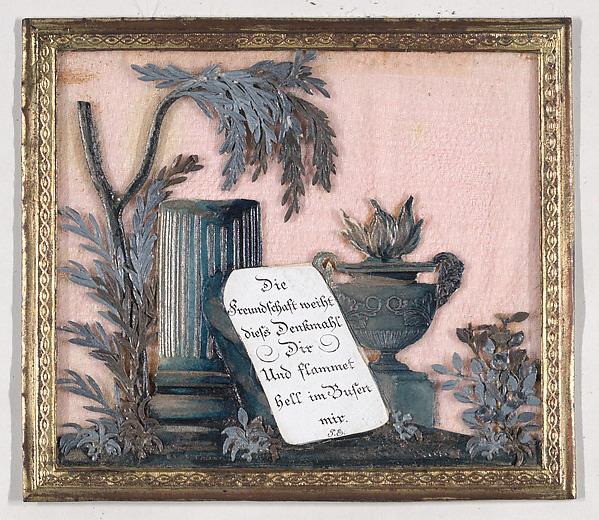 Die
Freundschaft weiht
dieſs Denkmahl
Dir
Und flammet
hell im Busen
mir.
J.E.